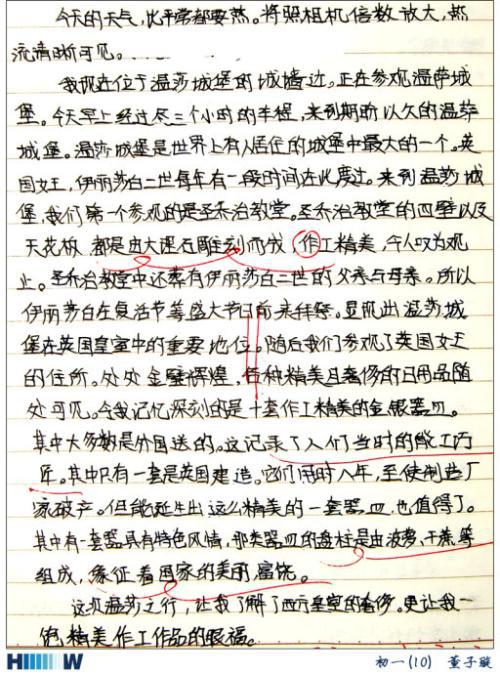 今天的天气，比平常都要热。将照相机倍数放大，热
流清晰可见。
我现在位于温莎城堡的城墙边。正在参观温莎城
堡。今天早上经过尽三个小时的车程，来到期盼以久的温莎
城堡。温莎城堡是世界上有人居住的城堡中最大的一个。英
国女王，伊丽莎白二世每年有一段时间在此度过。来到温莎城
堡，我们第一个参观的是圣乔治教堂。圣乔治教堂的四壁以及
天花板 都是由大理石雕刻而成，作工精美，令人叹为观
止。圣乔治教堂中还葬有伊丽莎白二世的父亲与母亲。所以
伊丽莎白在复活节等盛大节日前来拜祭。显现出温莎城
堡在英国皇室中的重要地位。随后我们参观了英国女王
的住所。处处金壁辉煌，各种精美且奢侈的日用品随
处可见。令我记忆深刻的是十套作工精美的金银器皿。
其中大多数是外国送的。这记录了人们当时的能工巧
匠。其中只有一套是英国建造。它们用时八年，至使制造厂
家破产。但能延生出这么精美的一套器皿也值得了。
其中有一套器具有特色风情，那类器皿的盘柱是由菠萝、干蕉等
组成，象征着国家的美丽富饶。
这次温莎之行，让我了解了西方皇室的奢侈。更让我一
饱精美作工作品的眼福。
初一(10) 董子璇